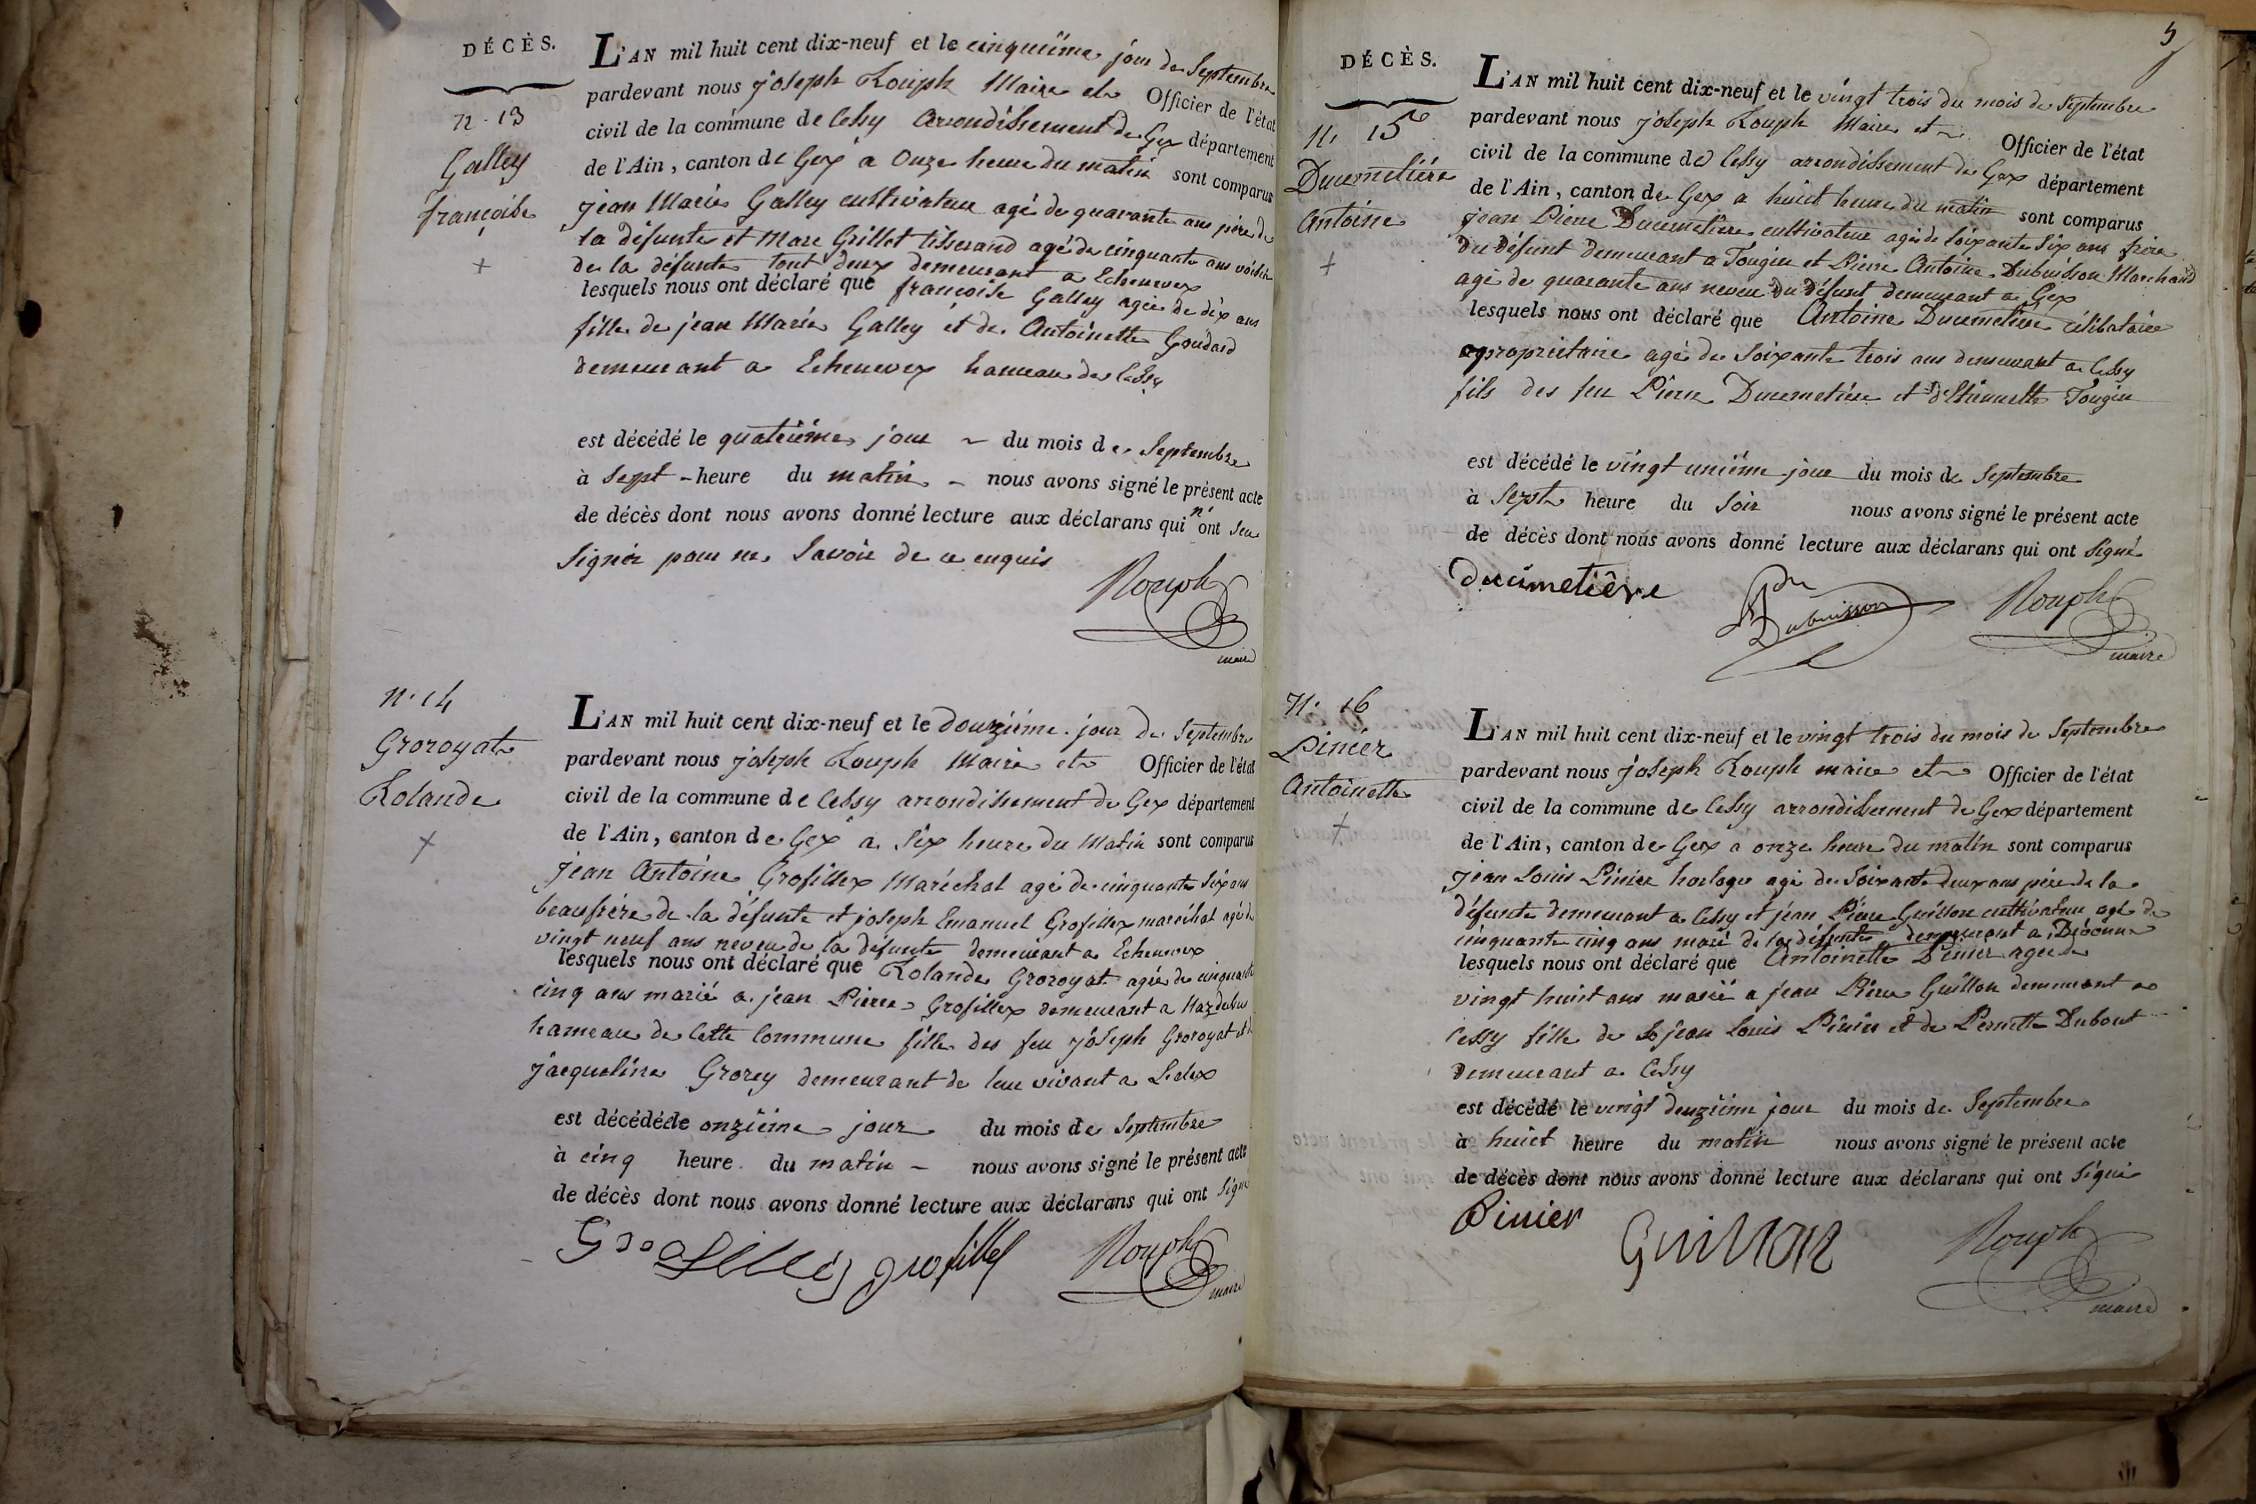 DÉCÈS.
n. 13
Galley
françoise
L'AN mil huit cent dix-neuf et le cinquiéme jour de Septembre
pardevant nous joseph Rouph Maire et Officier de l'état
civil de la commune de Cessy arrondissement de Gex département
de l'Ain, canton de Gex a Onze heure du matin sont comparus
jean Marie Galley cultivateur agé de quarante ans père de
la défunte et Marc Grillet tisserand agé de cinquante ans voisin
de la défunte tout deux demeurant a Echenevex
lesquels nous ont déclaré que françoise Galley agée de dix ans
fille de jean Marie Galley et de Antoinette Goudard
demeurant a Echenevex hameau de Cessy
est décédé le quatriéme jour du mois de Septembre
à sept heure du matin nous avons signé le présent acte
de décès dont nous avons donné lecture aux déclarans qui n'ont seu
signér pour ne savoir de ce enquis
Rouph
maire
n. 14
Groroyat
Rolande
L'AN mil huit cent dix-neuf et le douziéme jour de Septembre
pardevant nous joseph Rouph Maire et Officier de l'état
civil de la commune de Cessy arrondissement de Gex département
de l'Ain, canton de Gex a six heure du Matin sont comparus
jean Antoine Grosillex Maréchal agé de cinquante six ans
beaufrère de la défunte et joseph Emanuel Grosillex maréchal agé de
vingt neuf ans neveu de la défunte demeurant a Echenevex
lesquels nous ont déclaré que Rolande Groroyat agée de cinquante
cinq ans marié a jean Pierre Grosillex demeurant a
hameau de Cette Commune fille des feu joseph Groroyat et de
jacqueline Grorey demeurant de leur vivant a
est décédéele onziéme jour du mois de Septembre
à cinq heure du matin nous avons signé le présent acte
de décès dont nous avons donné lecture aux déclarans qui ont signé
grosillex
Rouph
maire
5
DÉCÈS.
n. 15
Ducimetière
Antoine
L'AN mil huit cent dix-neuf et le vingt trois du mois de Septembre
pardevant nous joseph Rouph Maire et Officier de l'état
civil de la commune de Cessy arrondissement de Gex département
de l'Ain, canton de Gex a huict heure du matin sont comparus
jean Pierre Ducimetière cultivateur agé de soixante six ans frère
du défunt demeurant a Tougin et Pierre Antoine Dubuisson Marchand
agé de quarante ans neveu du défunt demeurant a Gex
lesquels nous ont déclaré que Antoine Ducimetière célibataire
propriétaire agé de soixante trois ans demeurant a Cessy
fils des feu Pierre Ducimetière et d'Etiennette Tougin
est décédé le vingt uniéme jour du mois de Septembre
à sept heure du soir nous avons signé le présent acte
de décès dont nous avons donné lecture aux déclarans qui ont signé
ducimetière
Dubuisson
Rouph
maire
n. 16
Pinier
Antoinette
L'AN mil huit cent dix-neuf et le vingt trois du mois de Septembre
pardevant nous joseph Rouph maire et Officier de l'état
civil de la commune de Cessy arrondissement de Gex département
de l'Ain, canton de Gex a onze heure du matin sont comparus
jean Louis Pinier horloger agé de soixante deux ans père de la
défunte demeurant a Cessy et jean Pierre Guillon cultivateur agé de
cinquante cinq ans marié de la défunte demeurant a
lesquels nous ont déclaré que Antoinette Pinier agée de
vingt huit ans marié a jean Pierre Guillon demeurant a
Cessy fille de jean Louis Pinier et de Pernette Dubout
demeurant a Cessy
est décédé le vingt deuziéme jour du mois de Septembre
à huict heure du matin nous avons signé le présent acte
de décès dont nous avons donné lecture aux déclarans qui ont signé
Pinier
Guillon
Rouph
maire